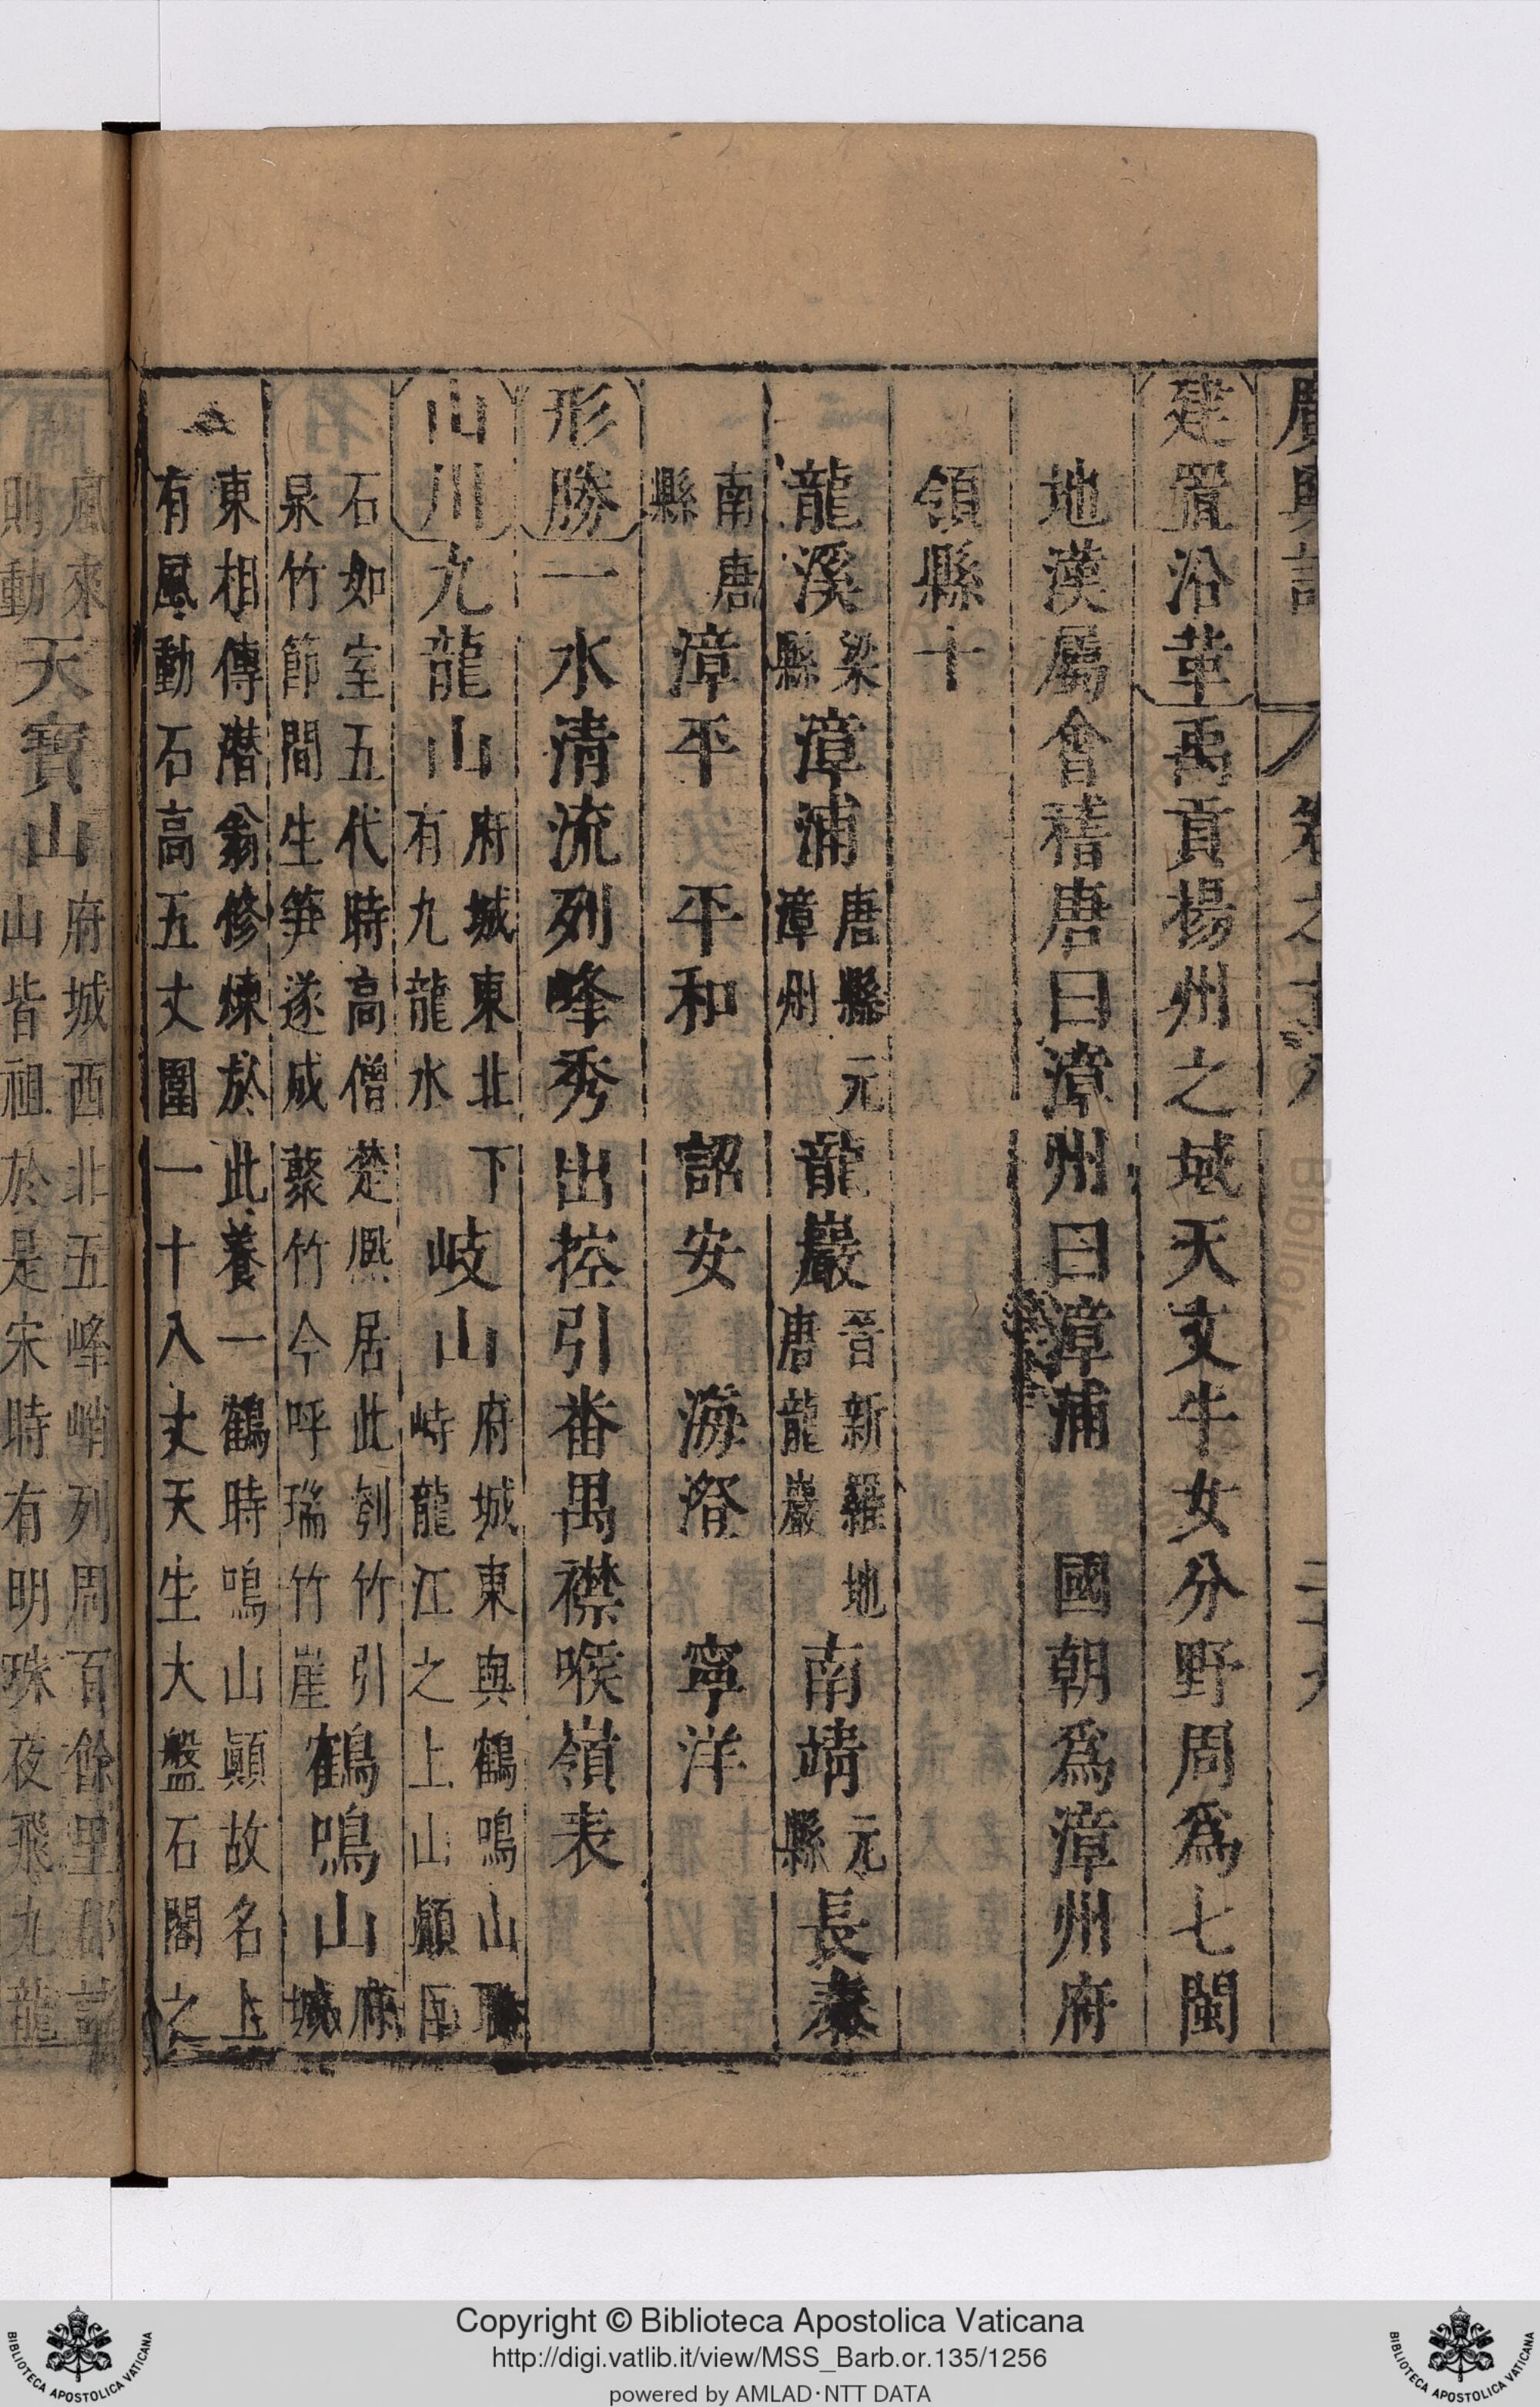 建置沿革禹貢揚州之域天文牛女分野周爲七閩
地漢屬會稽唐曰漳州曰漳浦 國朝爲漳州府
領縣十
龍溪梁縣漳浦唐縣元漳州龍巖晉新羅地唐龍巖南靖元縣長泰
南唐縣漳平 平和 詔安 海澄 寧洋
形勝一水清流列峰秀出控引番禺襟喉嶺表
山川九龍山府城東北下有九龍水岐山府城東與鶴鳴山
峙龍江之上山顛
石如室五代時高僧楚熙居此刳竹引
泉竹節間生笋遂成藂竹今呼瑞竹崖鶴鳴山府城
東相傳潛翁修煉於此養一鶴時鳴山顛故名上
有風動石高五丈圍一十八丈天生大盤石閣之
風來則動天寶山府城西北五峰峭列周百餘里郡
山皆祖於是宋時有明珠夜飛九龍
Copyright © Biblioteca Apostolica Vaticana
http://digi.vatlib.it/view/MSS_Barb.or.135/1256
powered by AMLAD·NTT DATA
BIBLIOTECA APOSTOLICA VATICANA
BIBLIOTECA APOSTOLICA VATICANA